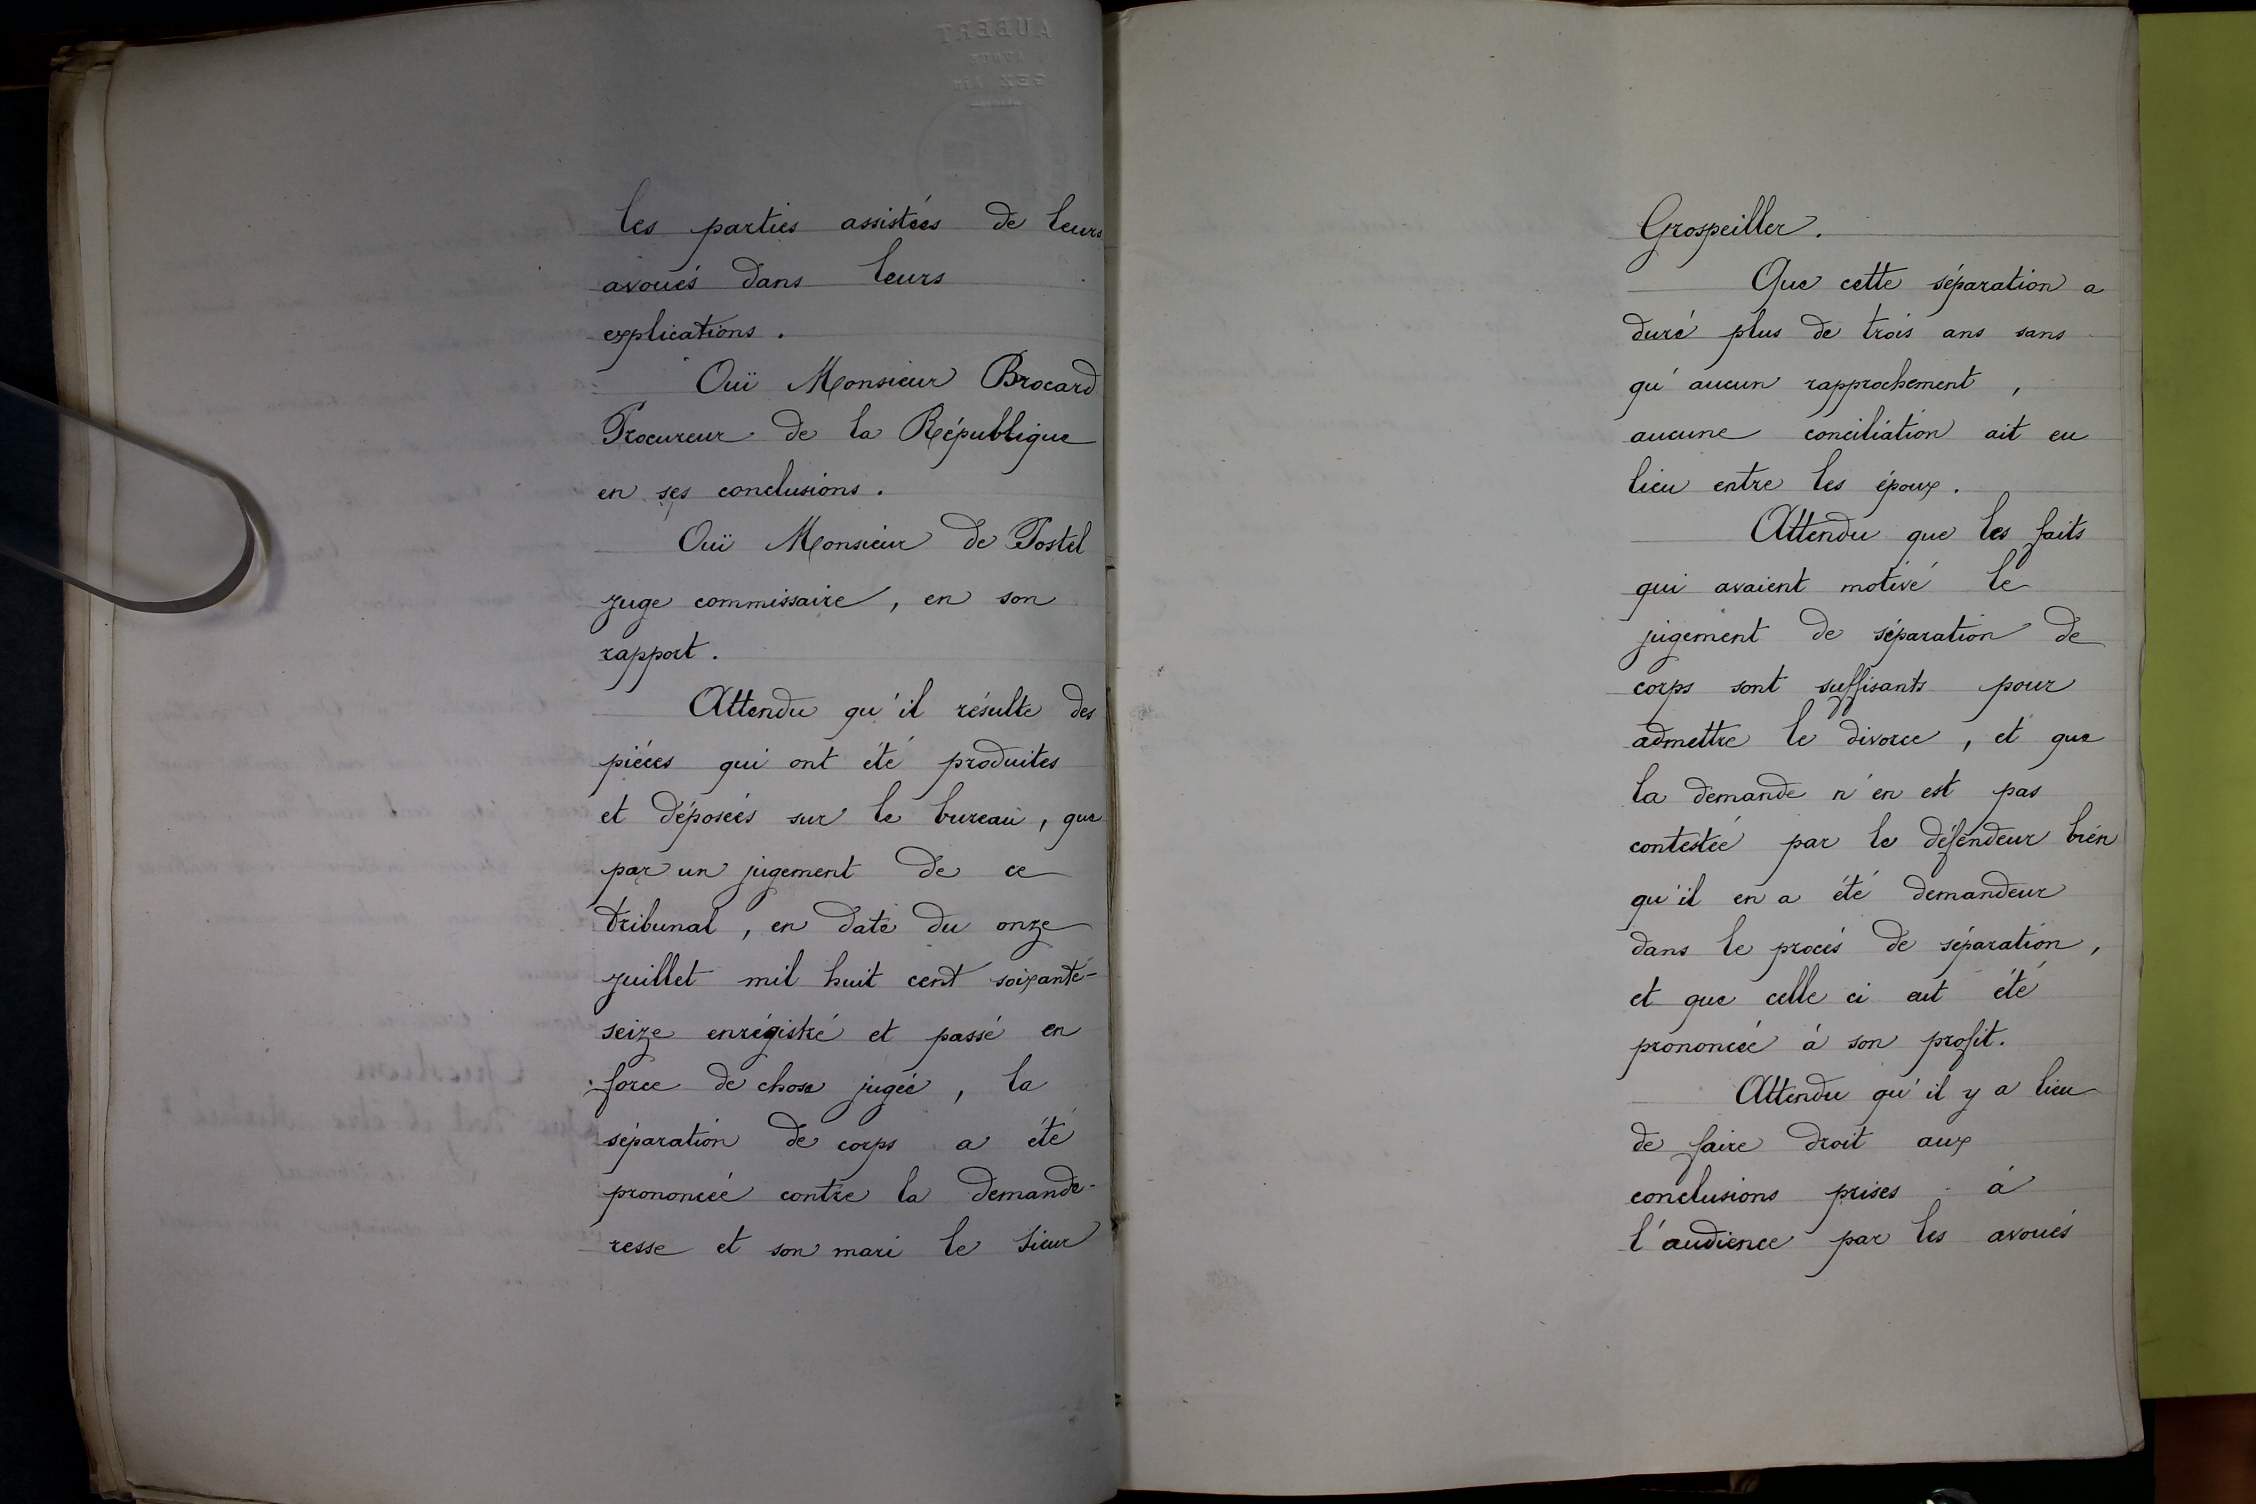 les parties assistées de leurs
avoués dans leurs
explications.
Ouï Monsieur Brocard
Procureur de la République
en ses conclusions.
Ouï Monsieur de Postel
juge commissaire, en son
rapport.
Attendu qu'il résulte des
piéces qui ont été produites
et déposées sur le bureau, que
par un jugement de ce
tribunal, en date du onze
juillet mil huit cent soixante-
seize enrégistré et passé en
force de chose jugée, la
séparation de corps a été
prononcée contre la demande-
resse et son mari le sieur
Grospeiller.
Que cette séparation a
duré plus de trois ans sans
qu'aucun rapprochement,
aucune conciliation ait eu
lieu entre les époux.
Attendu que les faits
qui avaient motivé le
jugement de séparation de
corps sont suffisants pour
admettre le divorce, et que
la demande n'en est pas
contestée par le défendeur bien
qu'il en a été demandeur
dans le procés de séparation,
et que celle ci ait été
prononcée à son profit.
Attendu qu'il y a lieu
de faire droit aux
conclusions prises à
l'audience par les avoués
AUBERT